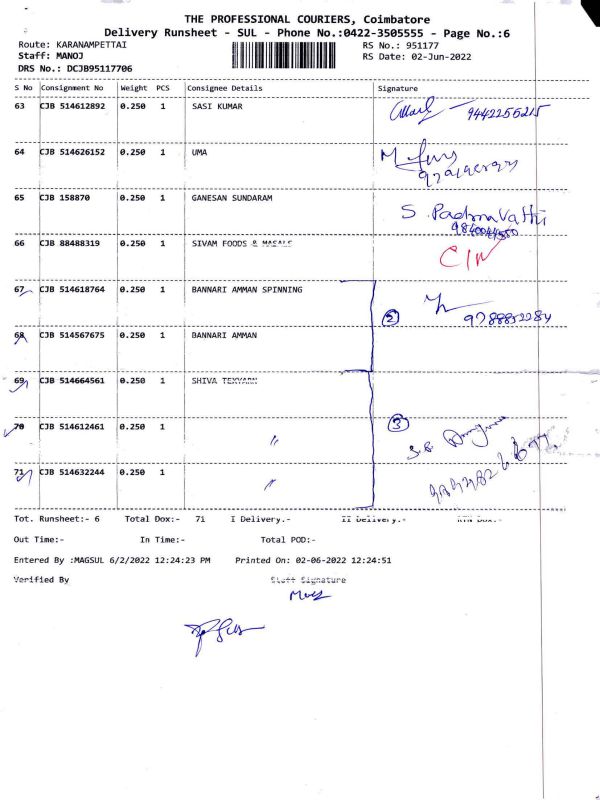 THE PROFESSIONAL COURIERS, Coimbatore
Delivery Runsheet - SUL - Phone No.:0422-3505555 - Page No.:6
Route: KARANAMPETTAI RS No.: 951177
Staff: MANOJ RS Date: 02-Jun-2022
DRS No.: DCJB95117706
S No Consignment No Weight PCS Consignee Details Signature
63 CJB 514612892 0.250 1 SASI KUMAR 9442255215
64 CJB 514626152 0.250 1 UMA M
65 CJB 158870 0.250 1 GANESAN SUNDARAM S. Padmavathi
66 CJB 88488319 0.250 1 SIVAM FOODS & MASALS
67 CJB 514618764 0.250 1 BANNARI AMMAN SPINNING 2
68 CJB 514567675 0.250 1 BANNARI AMMAN
69 CJB 514664561 0.250 1 SHIVA TEXYARN
70 CJB 514612461 0.250 1 〃 3
71 CJB 514632244 0.250 1 〃
Tot. Runsheet:- 6 Total Dox:- 71 I Delivery.- II Delivery.- RTN Dox.-
Out Time:- In Time:- Total POD:-
Entered By :MAGSUL 6/2/2022 12:24:23 PM Printed On: 02-06-2022 12:24:51
Verified By Staff Signature